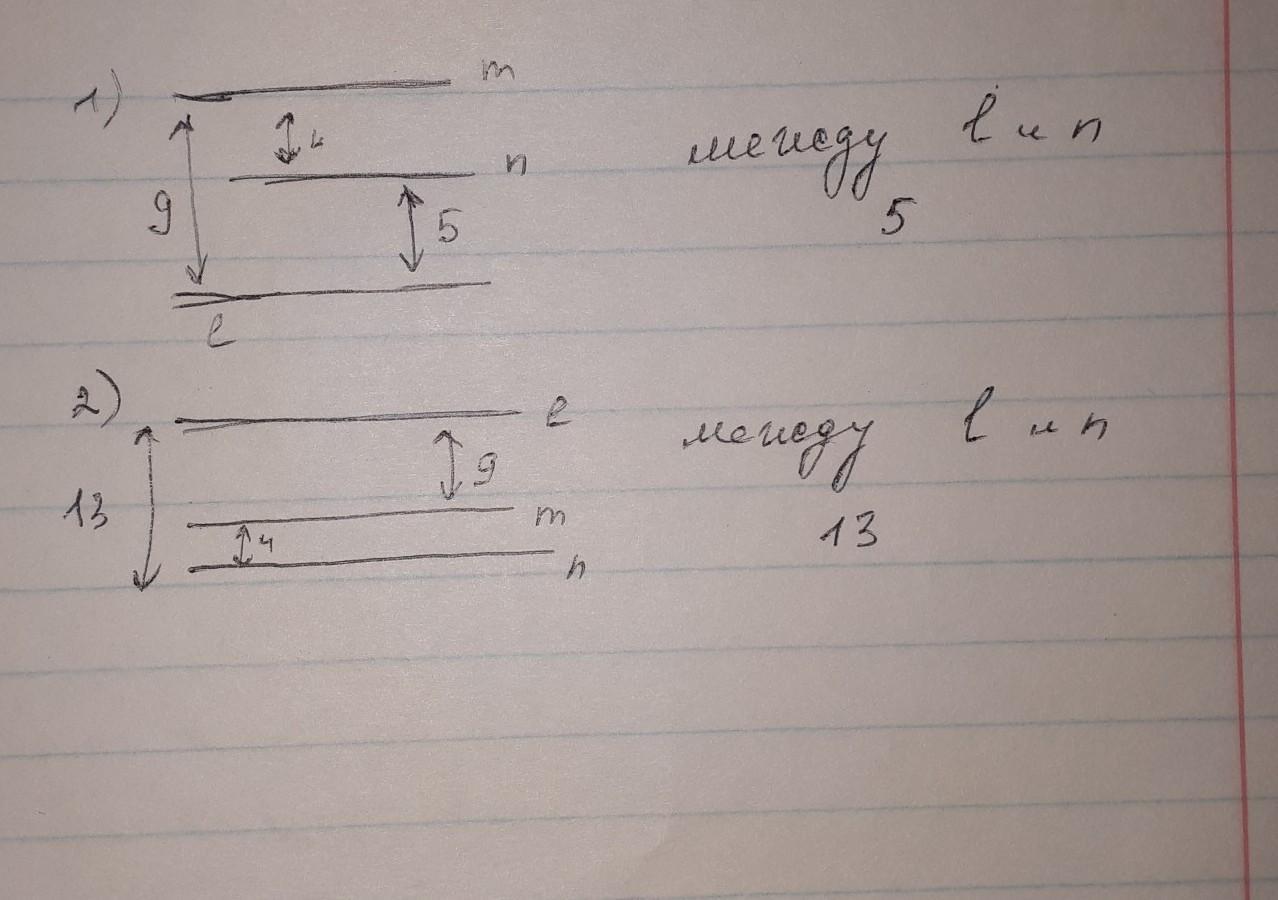 1)
m
4
n
9
5
l
между l и n
5
2)
l
9
13
m
4
n
между l и n
13